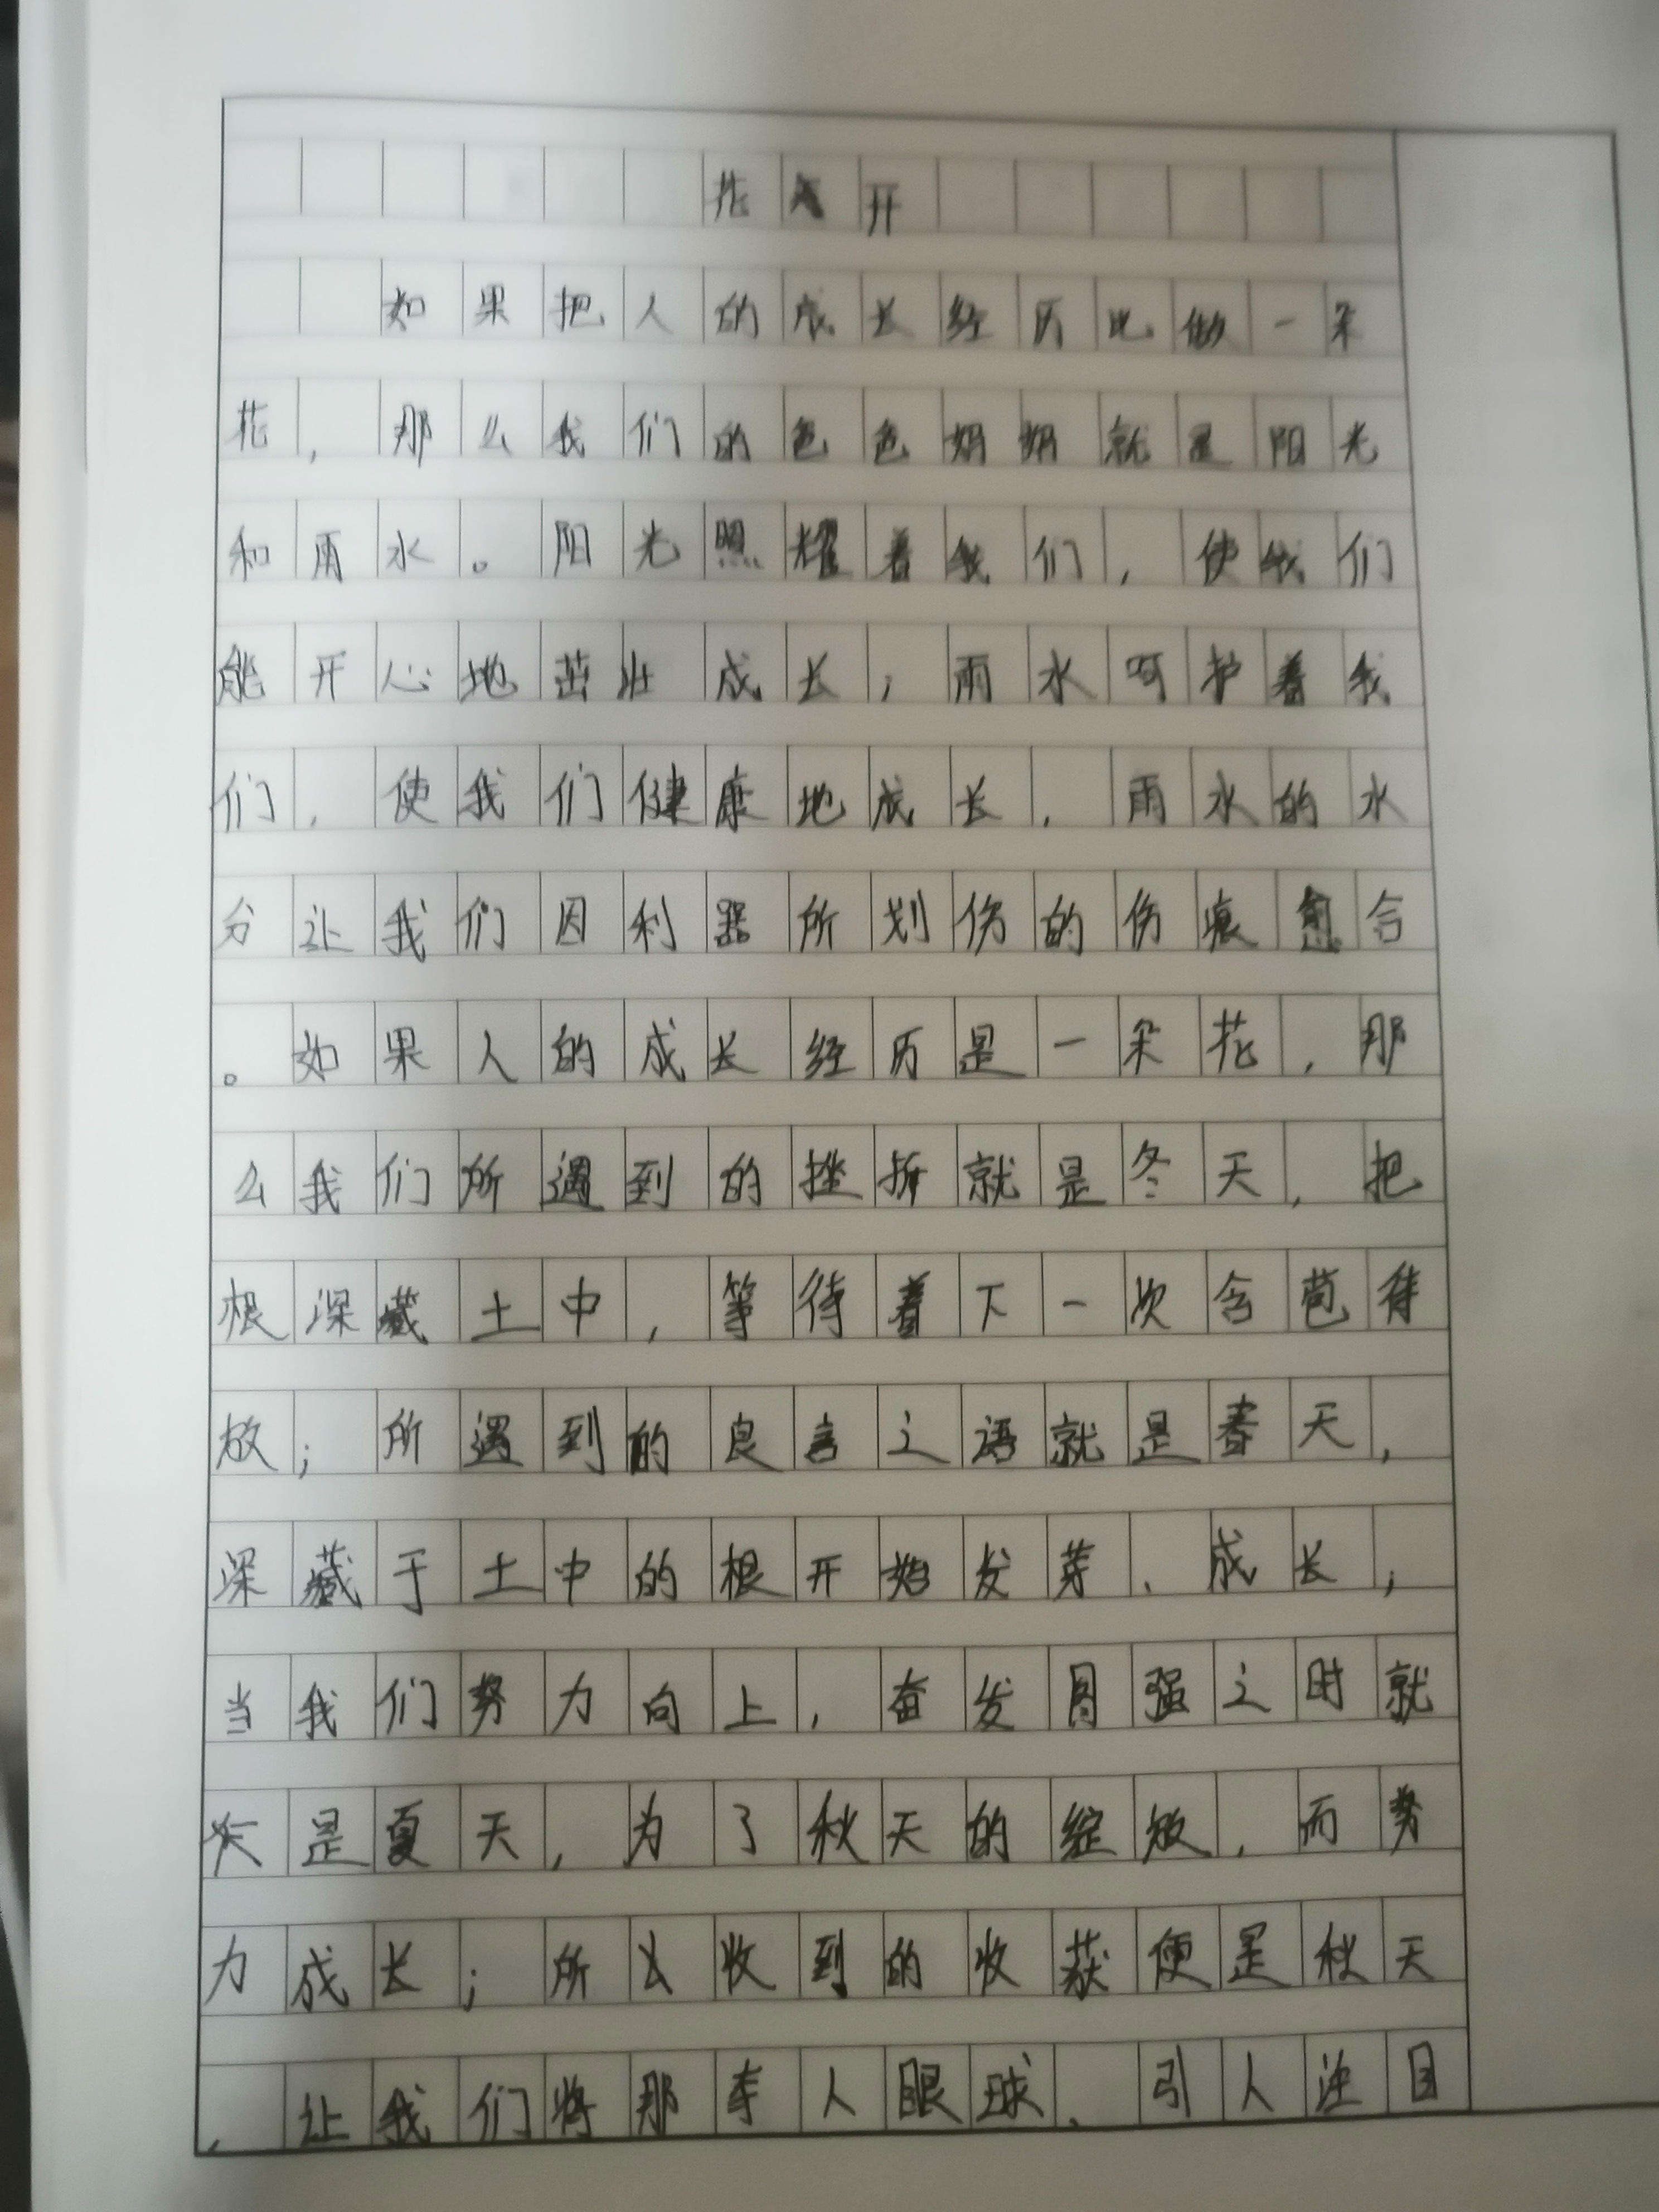 花开
如果把人的成长经历比做一朵
花，那么我们的爸爸妈妈就是阳光
和雨水。阳光照耀着我们，使我们
能开心地茁壮成长；雨水呵护着我
们，使我们健康地成长，雨水的水
分让我们因利器所划伤的伤痕愈合
。如果人的成长经历是一朵花，那
么我们所遇到的挫折就是冬天，把
根深藏土中，等待着下一次含苞待
放；所遇到的良言之语就是春天，
深藏于土中的根开始发芽、成长；
当我们努力向上，奋发图强之时就
是夏天，为了秋天的绽放，而努
力成长；所收到的收获便是秋天
，让我们将那夺人眼球、引人注目